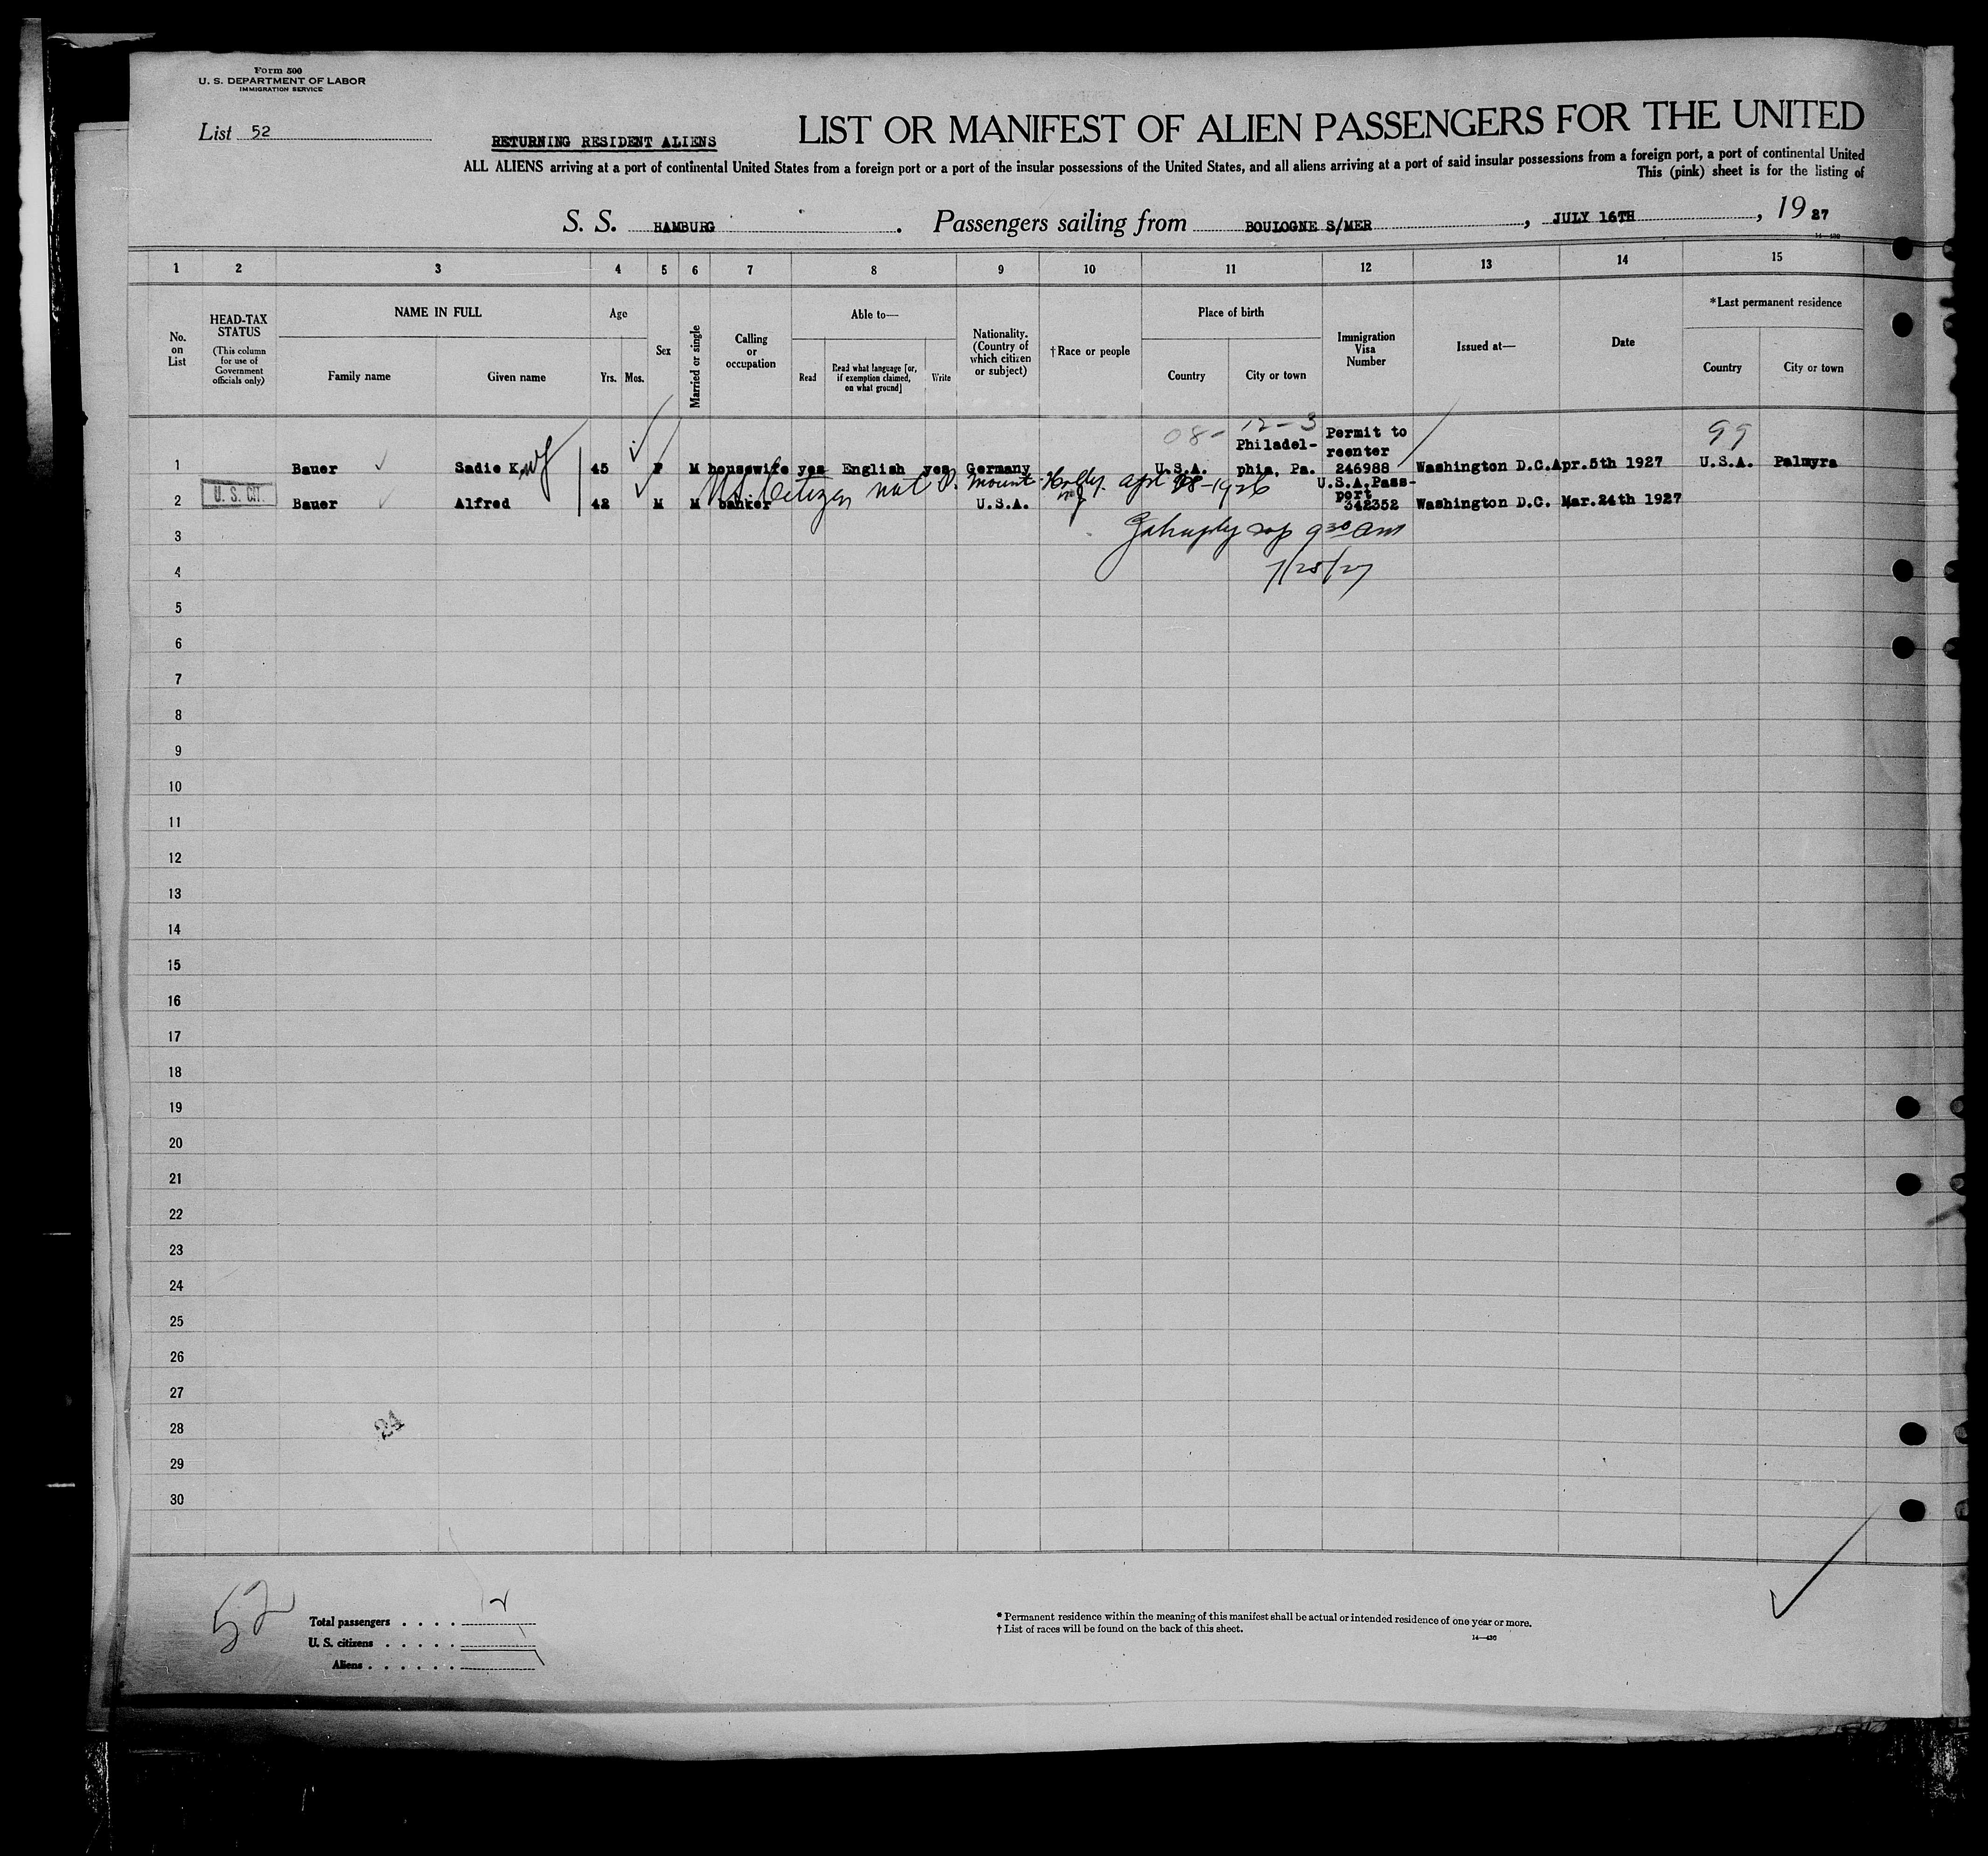 Form 500
U. S. DEPARTMENT OF LABOR
IMMIGRATION SERVICE
List 52
RETURNING RESIDENT ALIENS
LIST OR MANIFEST OF ALIEN PASSENGERS FOR THE UNITED
ALL ALIENS arriving at a port of continental United States from a foreign port or a port of the insular possessions of the United States, and all aliens arriving at a port of said insular possessions from a foreign port, a port of continental United
This (pink) sheet is for the listing of
S. S. HAMBURG . Passengers sailing from BOULOGNE S/MER , JULY 16TH , 19 27
14—430
1 2 3 4 5 6 7 8 9 10 11 12 13 14 15
No. on List
HEAD-TAX STATUS
(This column for use of Government officials only)
NAME IN FULL
Family name Given name
Age
Yrs. Mos.
Sex
Married or single
Calling or occupation
Able to—
Read
Read what language [or, if exemption claimed, on what ground]
Write
Nationality. (Country of which citizen or subject)
†Race or people
Place of birth
Country City or town
Immigration Visa Number
Issued at—
Date
*Last permanent residence
Country City or town
08- 12-3 99
Philadel- Permit to
reenter
1 Bauer Sadie K. wf 45 F M housewife yes English yes Germany U.S.A. phia, Pa. 246988 Washington D.C. Apr.5th 1927 U.S.A. Palmyra
US Citizen nat P. Mount Holly. apl 28-1926
NJ
U. S. CIT.
U.S.A.Pass-
port
2 Bauer Alfred 42 M M banker U.S.A. 342352 Washington D.C. Mar.24th 1927
3
930 am
4
7/25/27
5
6
7
8
9
10
11
12
13
14
15
16
17
18
19
20
21
22
23
24
25
26
27
28
24
29
30
52
Total passengers . . . . 2
U. S. citizens . . . . . 1
Aliens . . . . . . 1
* Permanent residence within the meaning of this manifest shall be actual or intended residence of one year or more.
† List of races will be found on the back of this sheet.
14—430